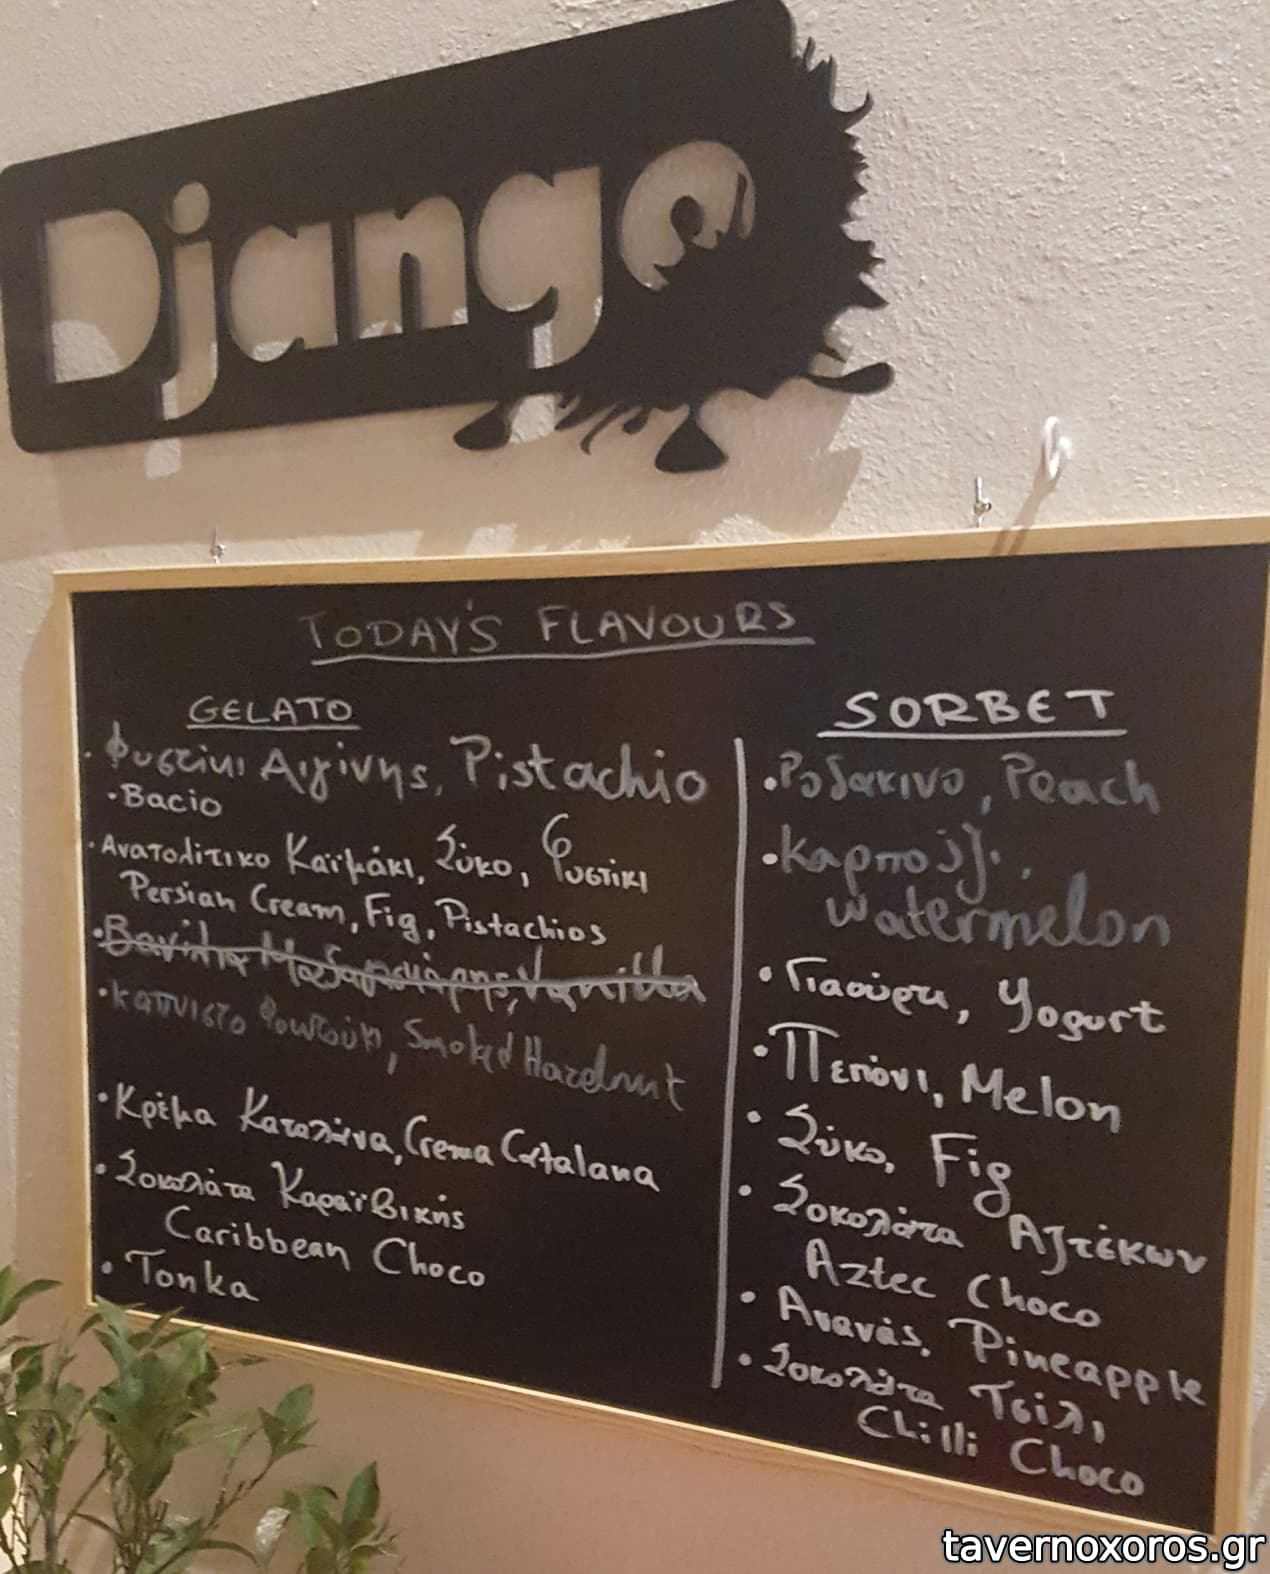 Django
TODAY'S FLAVOURS
GELATO
· Φυστίκι Αιγίνης, Pistachio
· Bacio
· Ανατολίτικο Καϊμάκι, Σύκο, Φυστίκι
Persian Cream, Fig, Pistachios
· Βανίλια Μαδαγασκάρης, Vanilla
· Καπνιστό Φουντούκι, Smoked Hazelnut
· Κρέμα Καταλάνα, Crema Catalana
· Σοκολάτα Καραϊβικής
Caribbean Choco
· Tonka
SORBET
· Ροδακινο, Peach
· Καρπούζι,
Watermelon
· Γιαούρτι, Yogurt
· Πεπόνι, Melon
· Σύκο, Fig
· Σοκολάτα Αζτέκων
Aztec Choco
· Ανανάς, Pineapple
· Σοκολάτα Τσίλι
Chilli Choco
tavernoxoros.gr